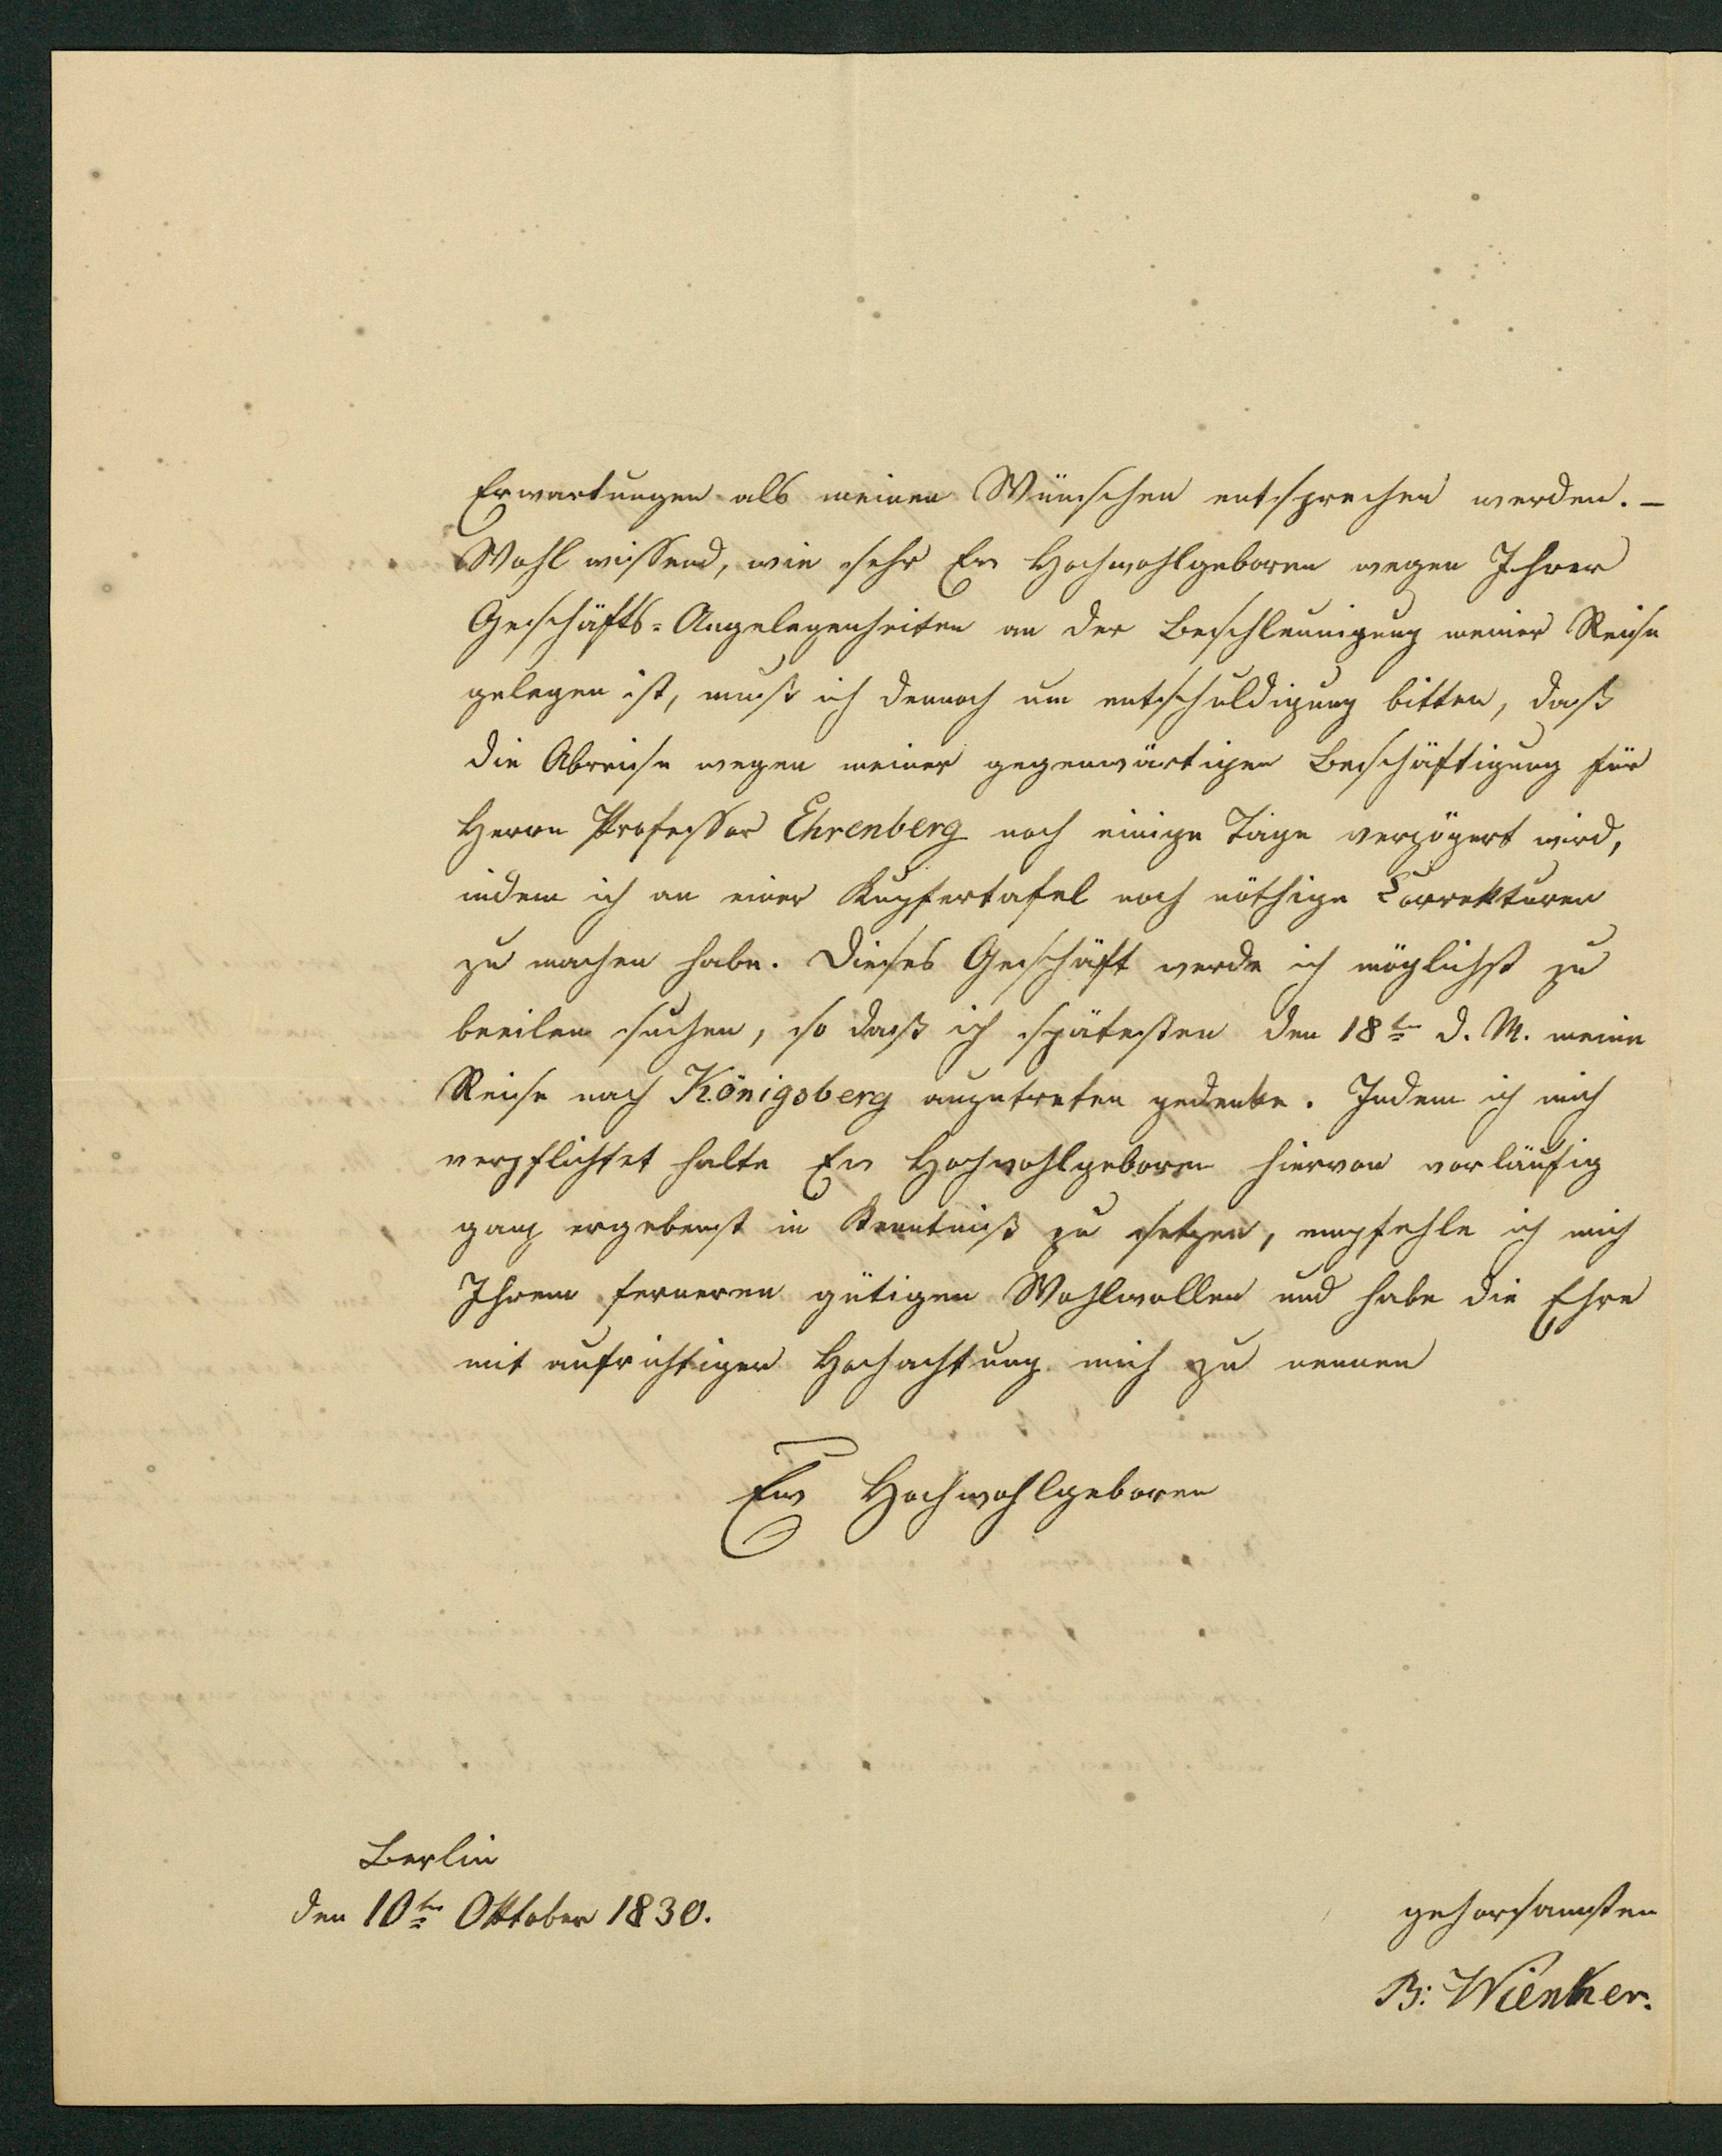 Erwartungen als meinen Wünschen entsprechen werden. –
Wohl wissend, wie sehr Ew Hochwohlgeboren wegen Ihrer
Geschäfts-Angelegenheiten an der Beschleunigung meiner Reise
gelegen ist, muß ich dennoch um entschuldigung bitten, daß
die Abreise wegen meiner gegenwärtigen Beschäftigung für
Herrn Professor Ehrenberg noch einige Tage verzögert wird,
indem ich an einer Kupfertafel noch nöthige Correkturen
zu machen habe. Dieses Geschäft werde ich möglichst zu
beeilen suchen, so daß ich spätesten den 18ten d. M. meine
Reise nach Königsberg anzutreten gedenke. Indem ich mich
verpflichtet halte Ew Hochwohlgeboren hiervon vorläufig
ganz ergebenst in Kenntniß zu setzen, empfehle ich mich
Ihrem ferneren gütigen Wohlwollen und habe die Ehre
mit aufrichtiger Hochachtung mich zu nennen
Ew Hochwohlgeboren
Berlin
den 10ten Oktober 1830.
gehorsamsten
B: Wienker.